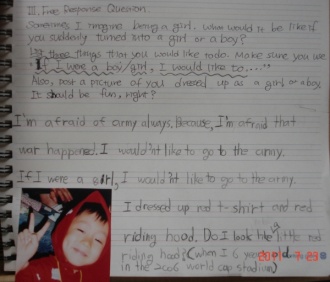 III. Free Response Question
Sometimes I imagine being a girl. What would it be like if
you suddenly turned into a girl or a boy?
List three things that you would like to do. Make sure you use
"If I were a boy/girl, I would like to....."
Also, post a picture of you dressed up as a girl or a boy.
It should be fun, right?
I'm afraid of army always. Because, I'm afraid that
war happened. I would'nt like to go to the army.
If I were a girl, I would'nt like to go to the army.
I dressed up red t-shirt and red
riding hood. Do I look like little red
riding hood? (when I 6 years old
in the 2006 world cup stadium)